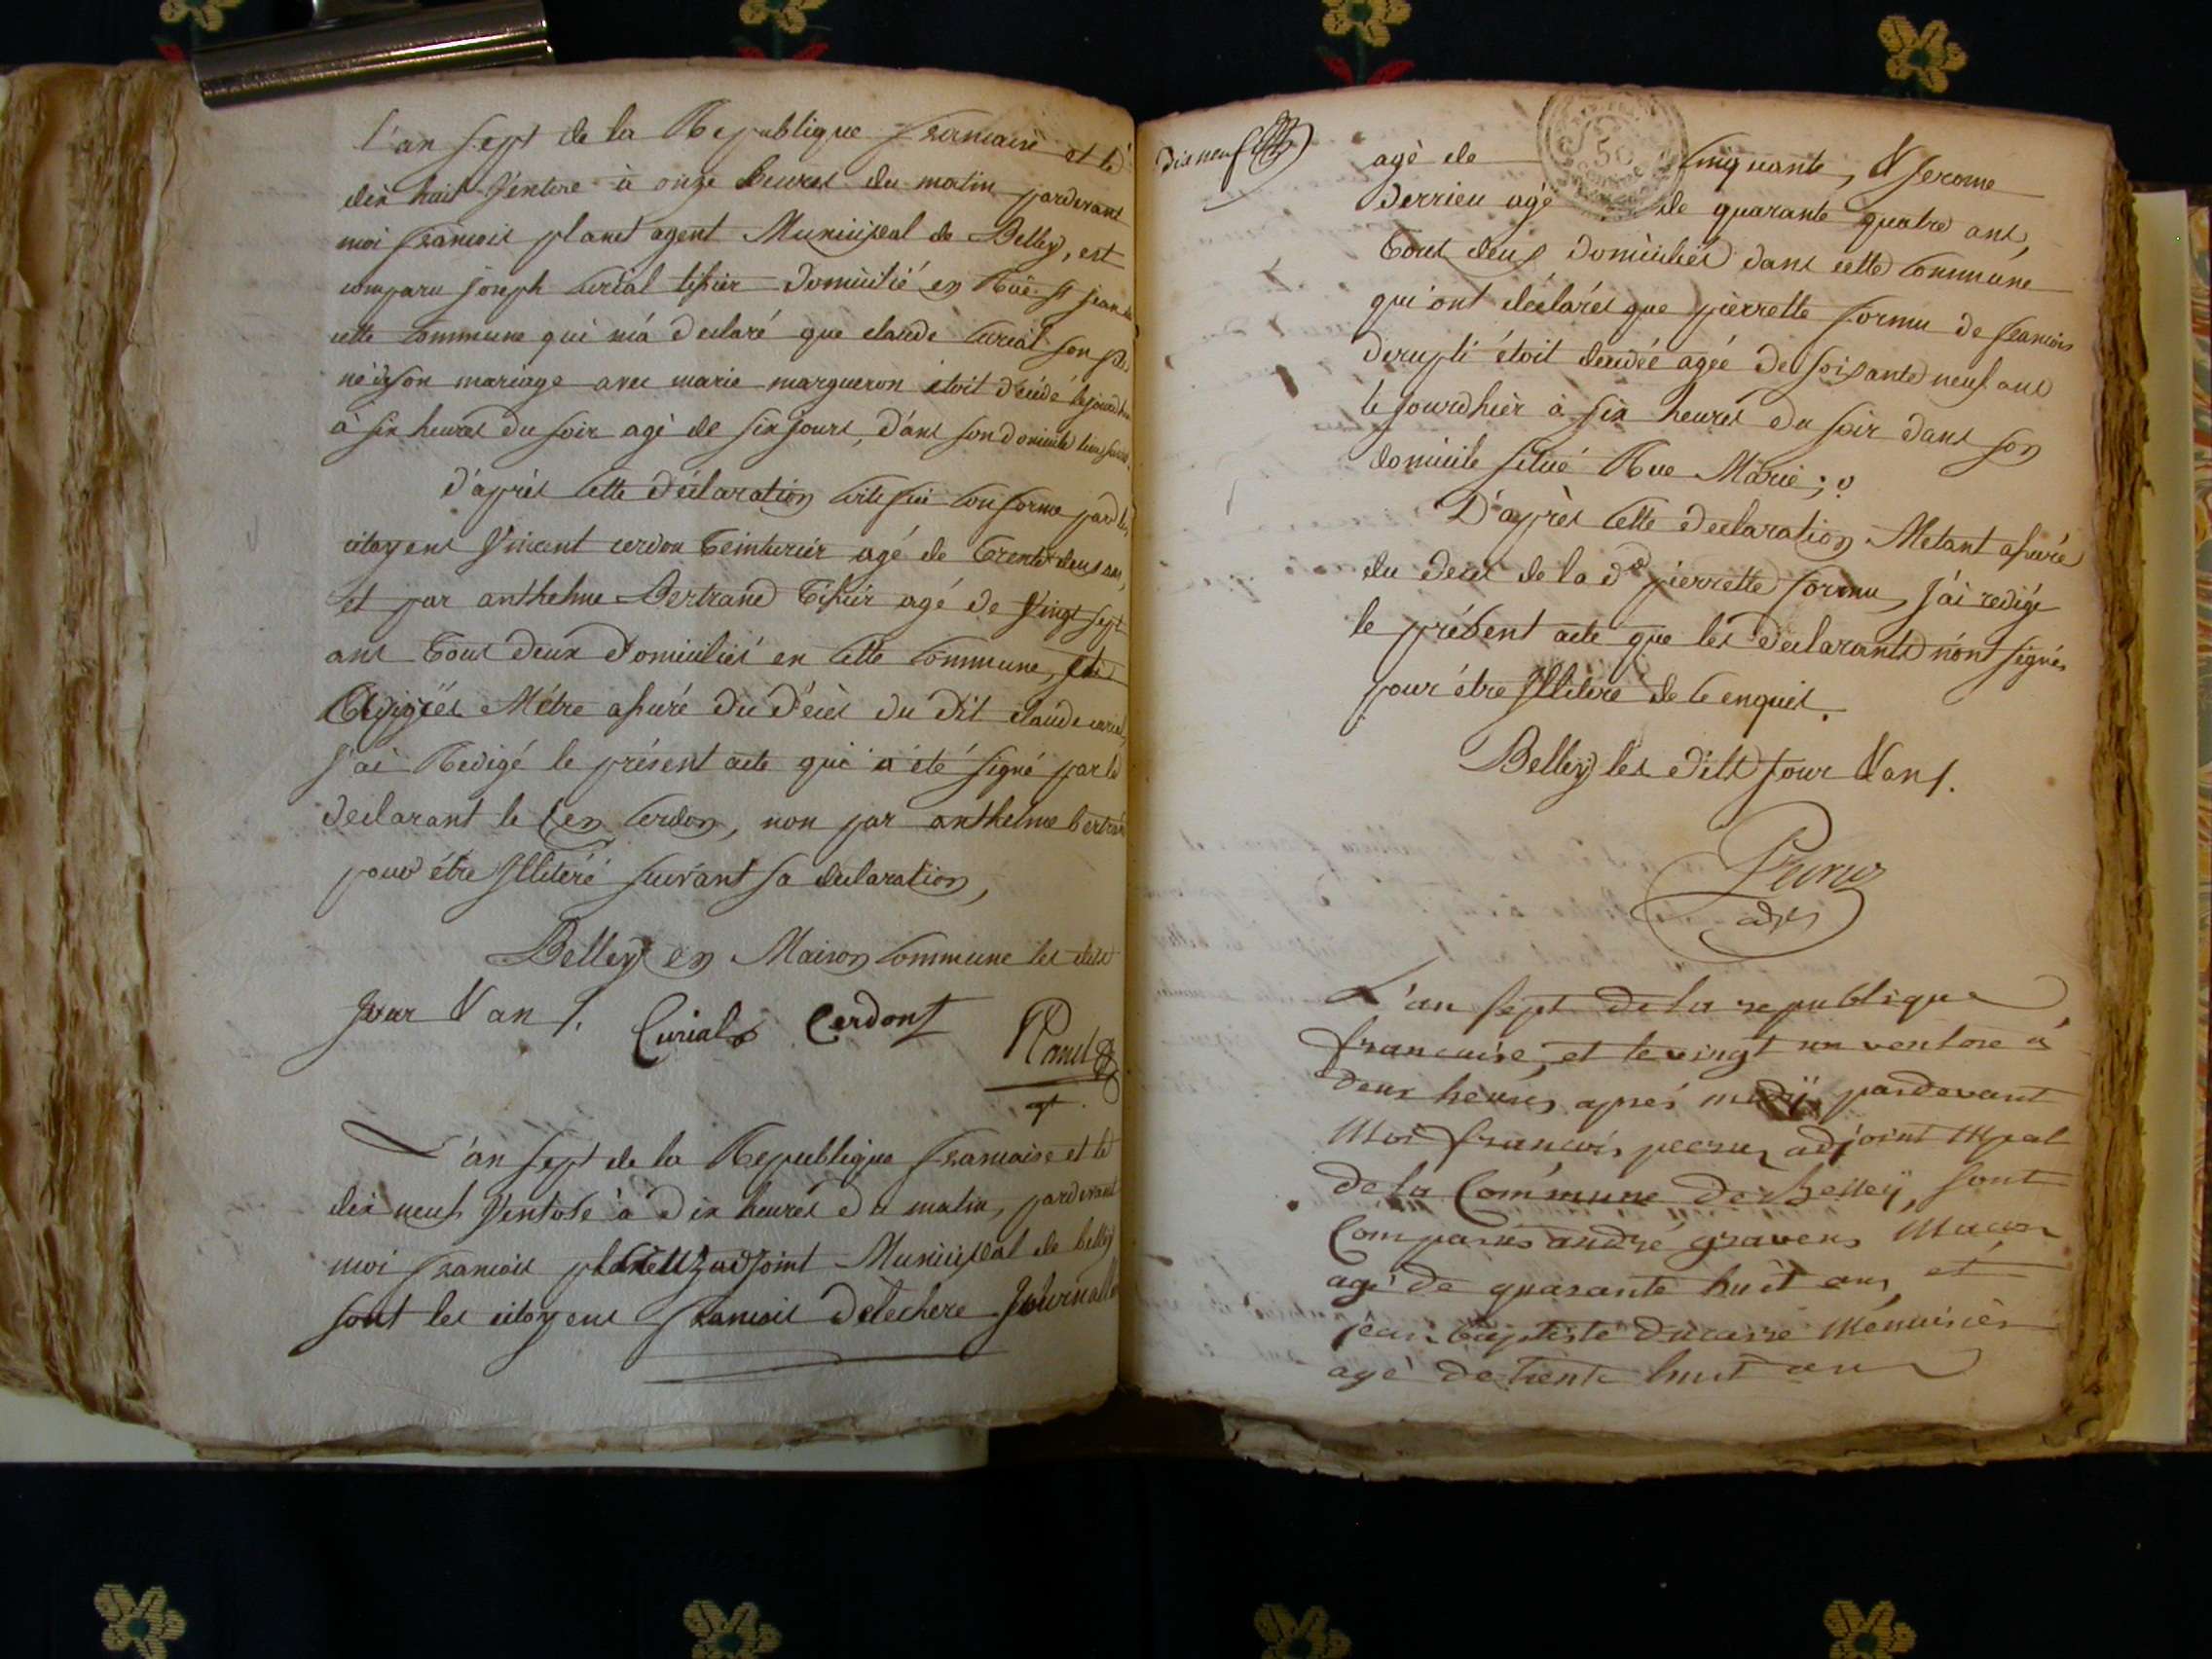 L'an sept de la Republique francaise et le
dix huit ventose à onze heures du matin pardevant
moi francois planet agent Municipal de Belley, est
comparu joseph curial tissier domicilié en Rue St jean de
cette commune qui m'a declaré que claude curial son fils
né de son mariage avec marie margueron étoit décédé le jourdhier
à six heures du soir agé de six jours, dans son domicile
d'après cette déclaration certifiée conforme par les
citoyens Vincent cerdon teinturier agé de trente deux ans,
et par anthelme Bertrand tissier agé de vingt sept
ans tous deux domiciliés en cette commune,
M'étre assuré du décès du dit claude curial,
j'ai Redigé le présent acte qui a été signé par le
declarant le Cen cerdon, non par anthelme bertrand
pour étre Illitéré suivant sa declaration,
Belley en Maison commune les dits
Jour & an f.
Curial Cerdont Planet
agt
L'an sept de la Republique francaise et le
dix neuf Ventose à dix heures du matin, pardevant
moi francois adjoint Municipal de belley
sont les citoyens francois delechere Journallier
dix neuf
agé de cinquante, & Jerome
derrieu agé de quarante quatre ans,
tous deux domiciliés dans cette commune
qui ont déclarés que pierrette formu de francois
derupti étoit décédée agée de soixante neuf ans
le jourdhier à six heures du soir dans son
domicile situé Rue Marie;
D'après cette declaration M'etant assuré
du deces de la de pierrette formu, j'ai redigé
le présent acte que les declarants n'ont signés
pour étre Illiteré de ce enquis.
Belley les dits jour & an f.
Peeruz
adjt
L'an sept de la republique
francaise, et le vingt un ventose à
deux heures aprés midy pardevant
Moi francois peeruz adjoint Mpal
de la Commune de Belley, sont
Comparus andré gravens Macon
agé de quarante huit ans, et
jean baptiste ducarre Ménuisier
agé de trente huit ans